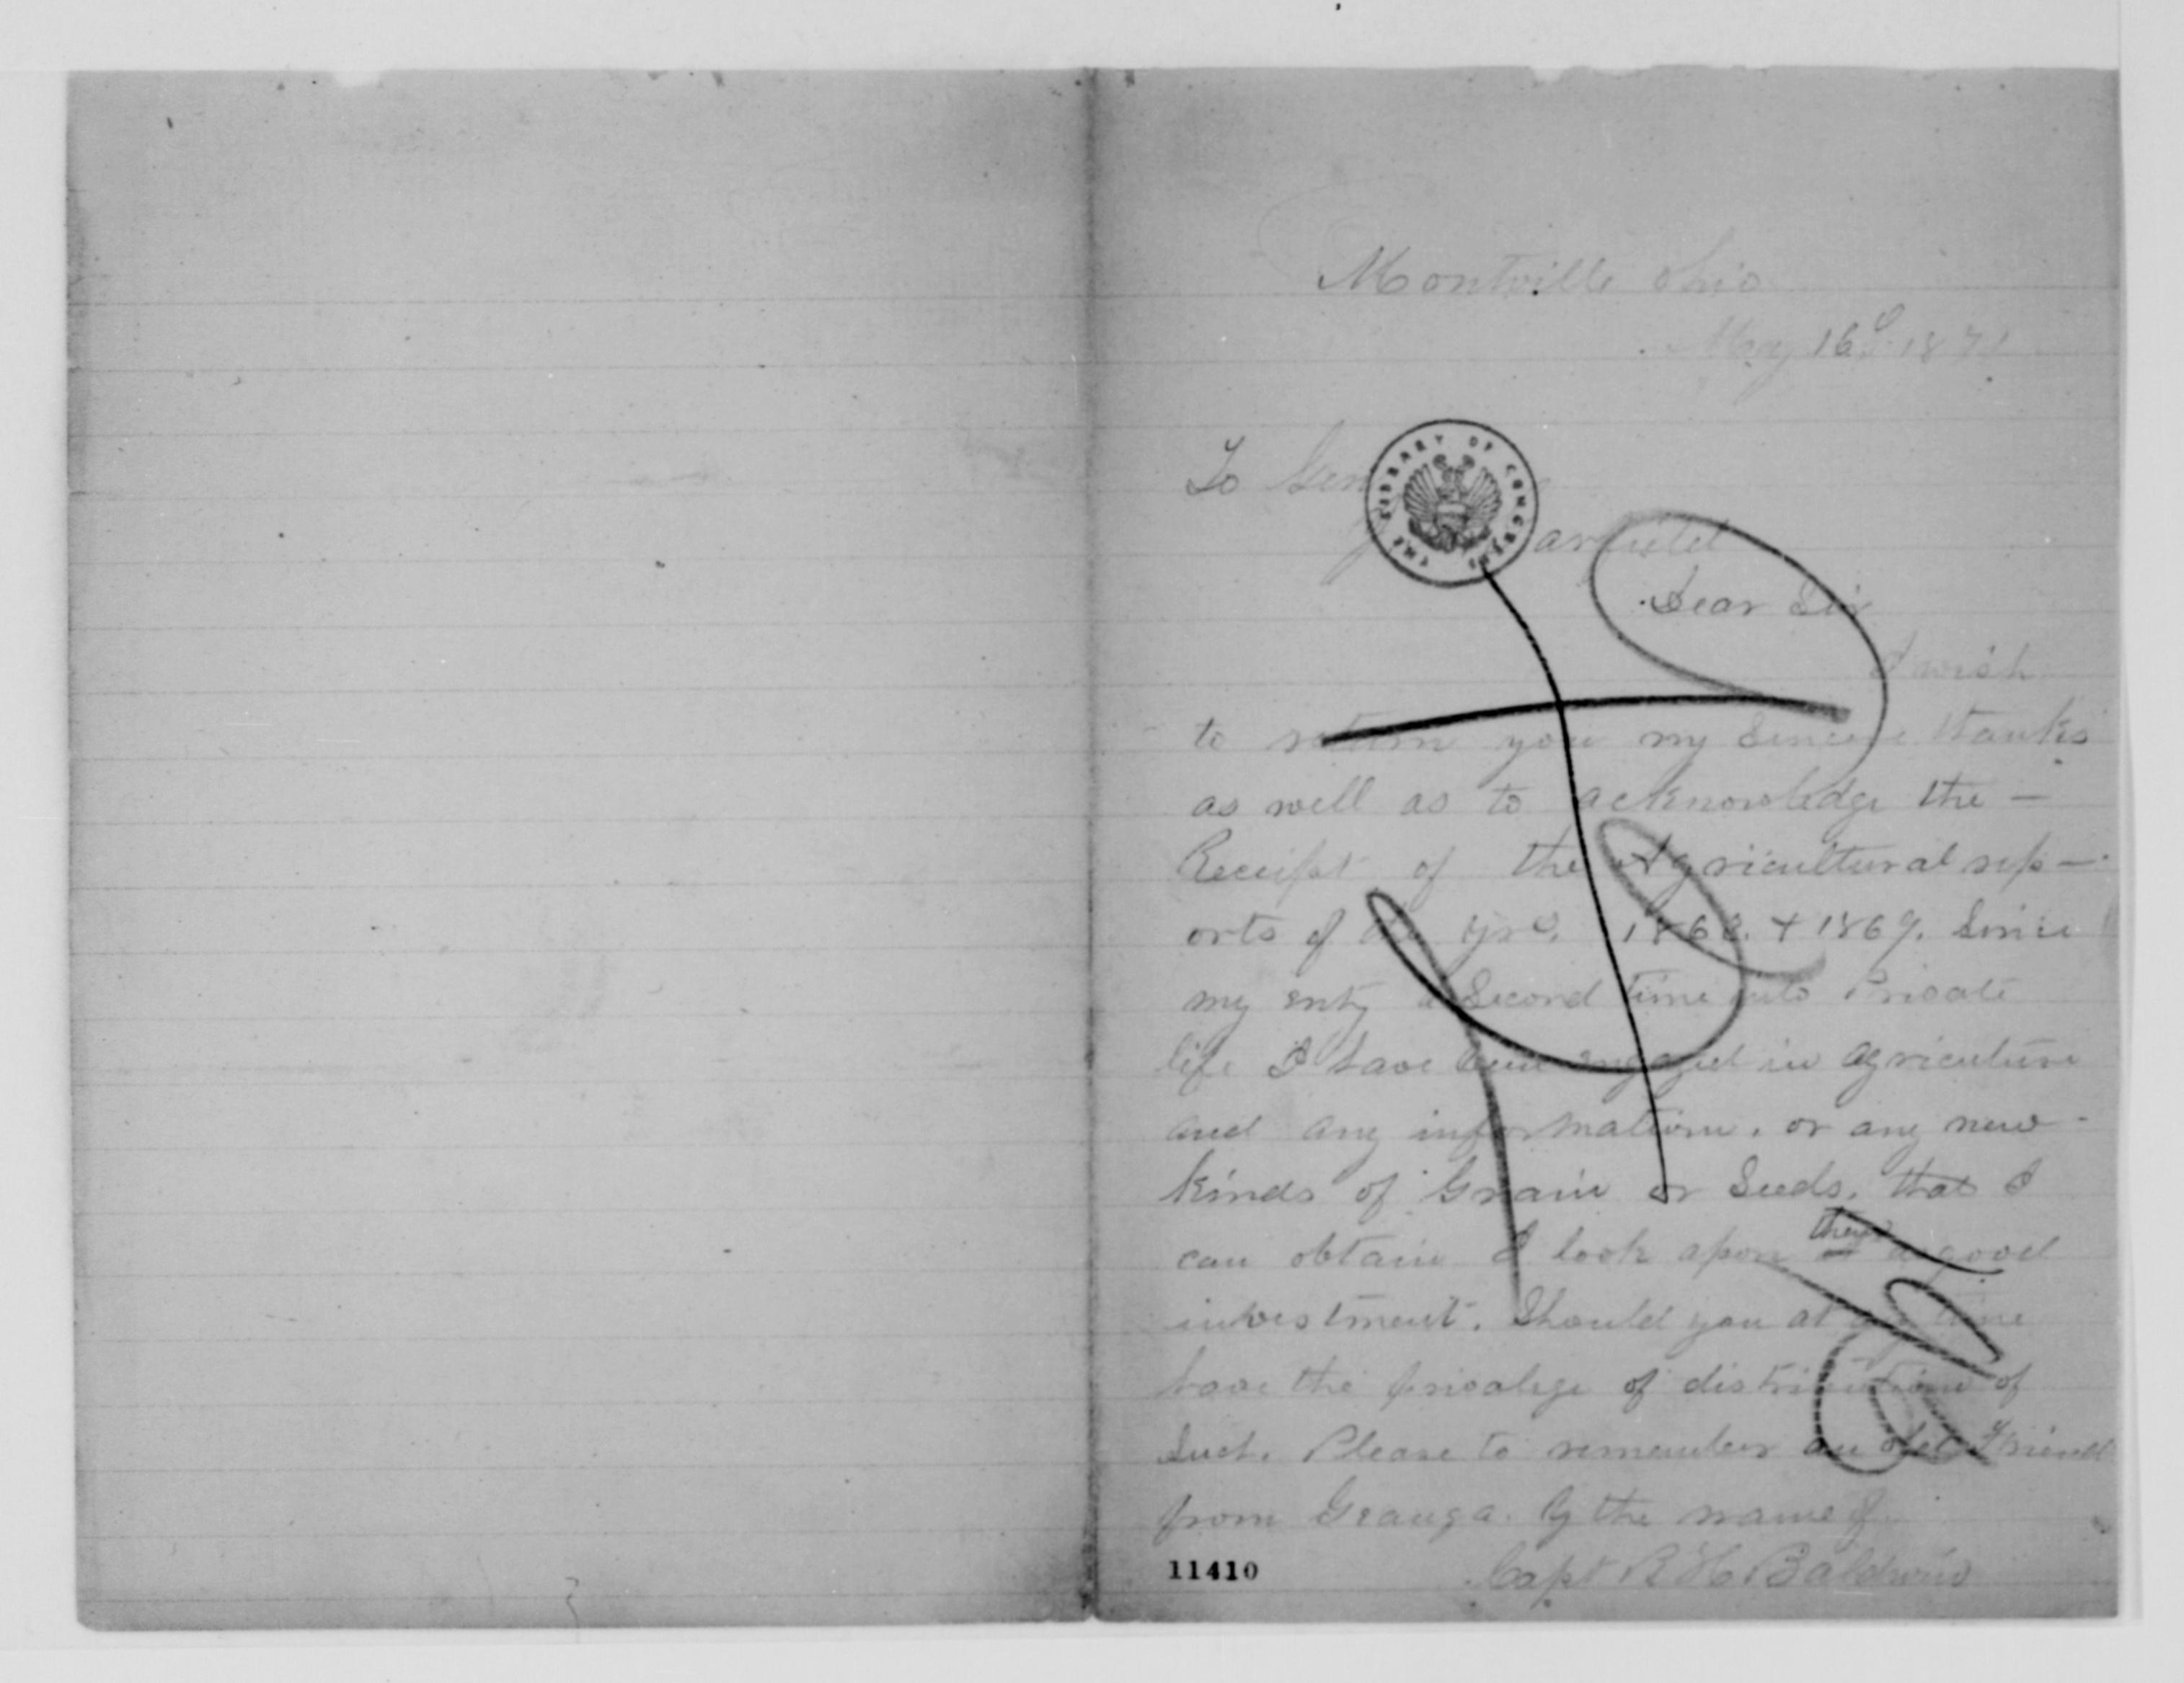 Montville Ohio
May 16th 1871
To Gen
Garfield
Dear Sir
I wish
to return you my Sincere thanks
as well as to acknowledge the —
Receipt of the Agricultural rep—
orts of the yrs. 1868. + 1869. Since
my enty a Second time into Private
life I have been engaged in Agriculture
and any information. or any new
kinds of Grain or Seeds. that I
can obtain I look apon they a good
investment. Should you at any time
have the privalege of distribution of
Such. Please to remember an old Friend
from Geauga. By the name of
Capt R H Baldwin
11410
THE LIBRARY OF CONGRESS